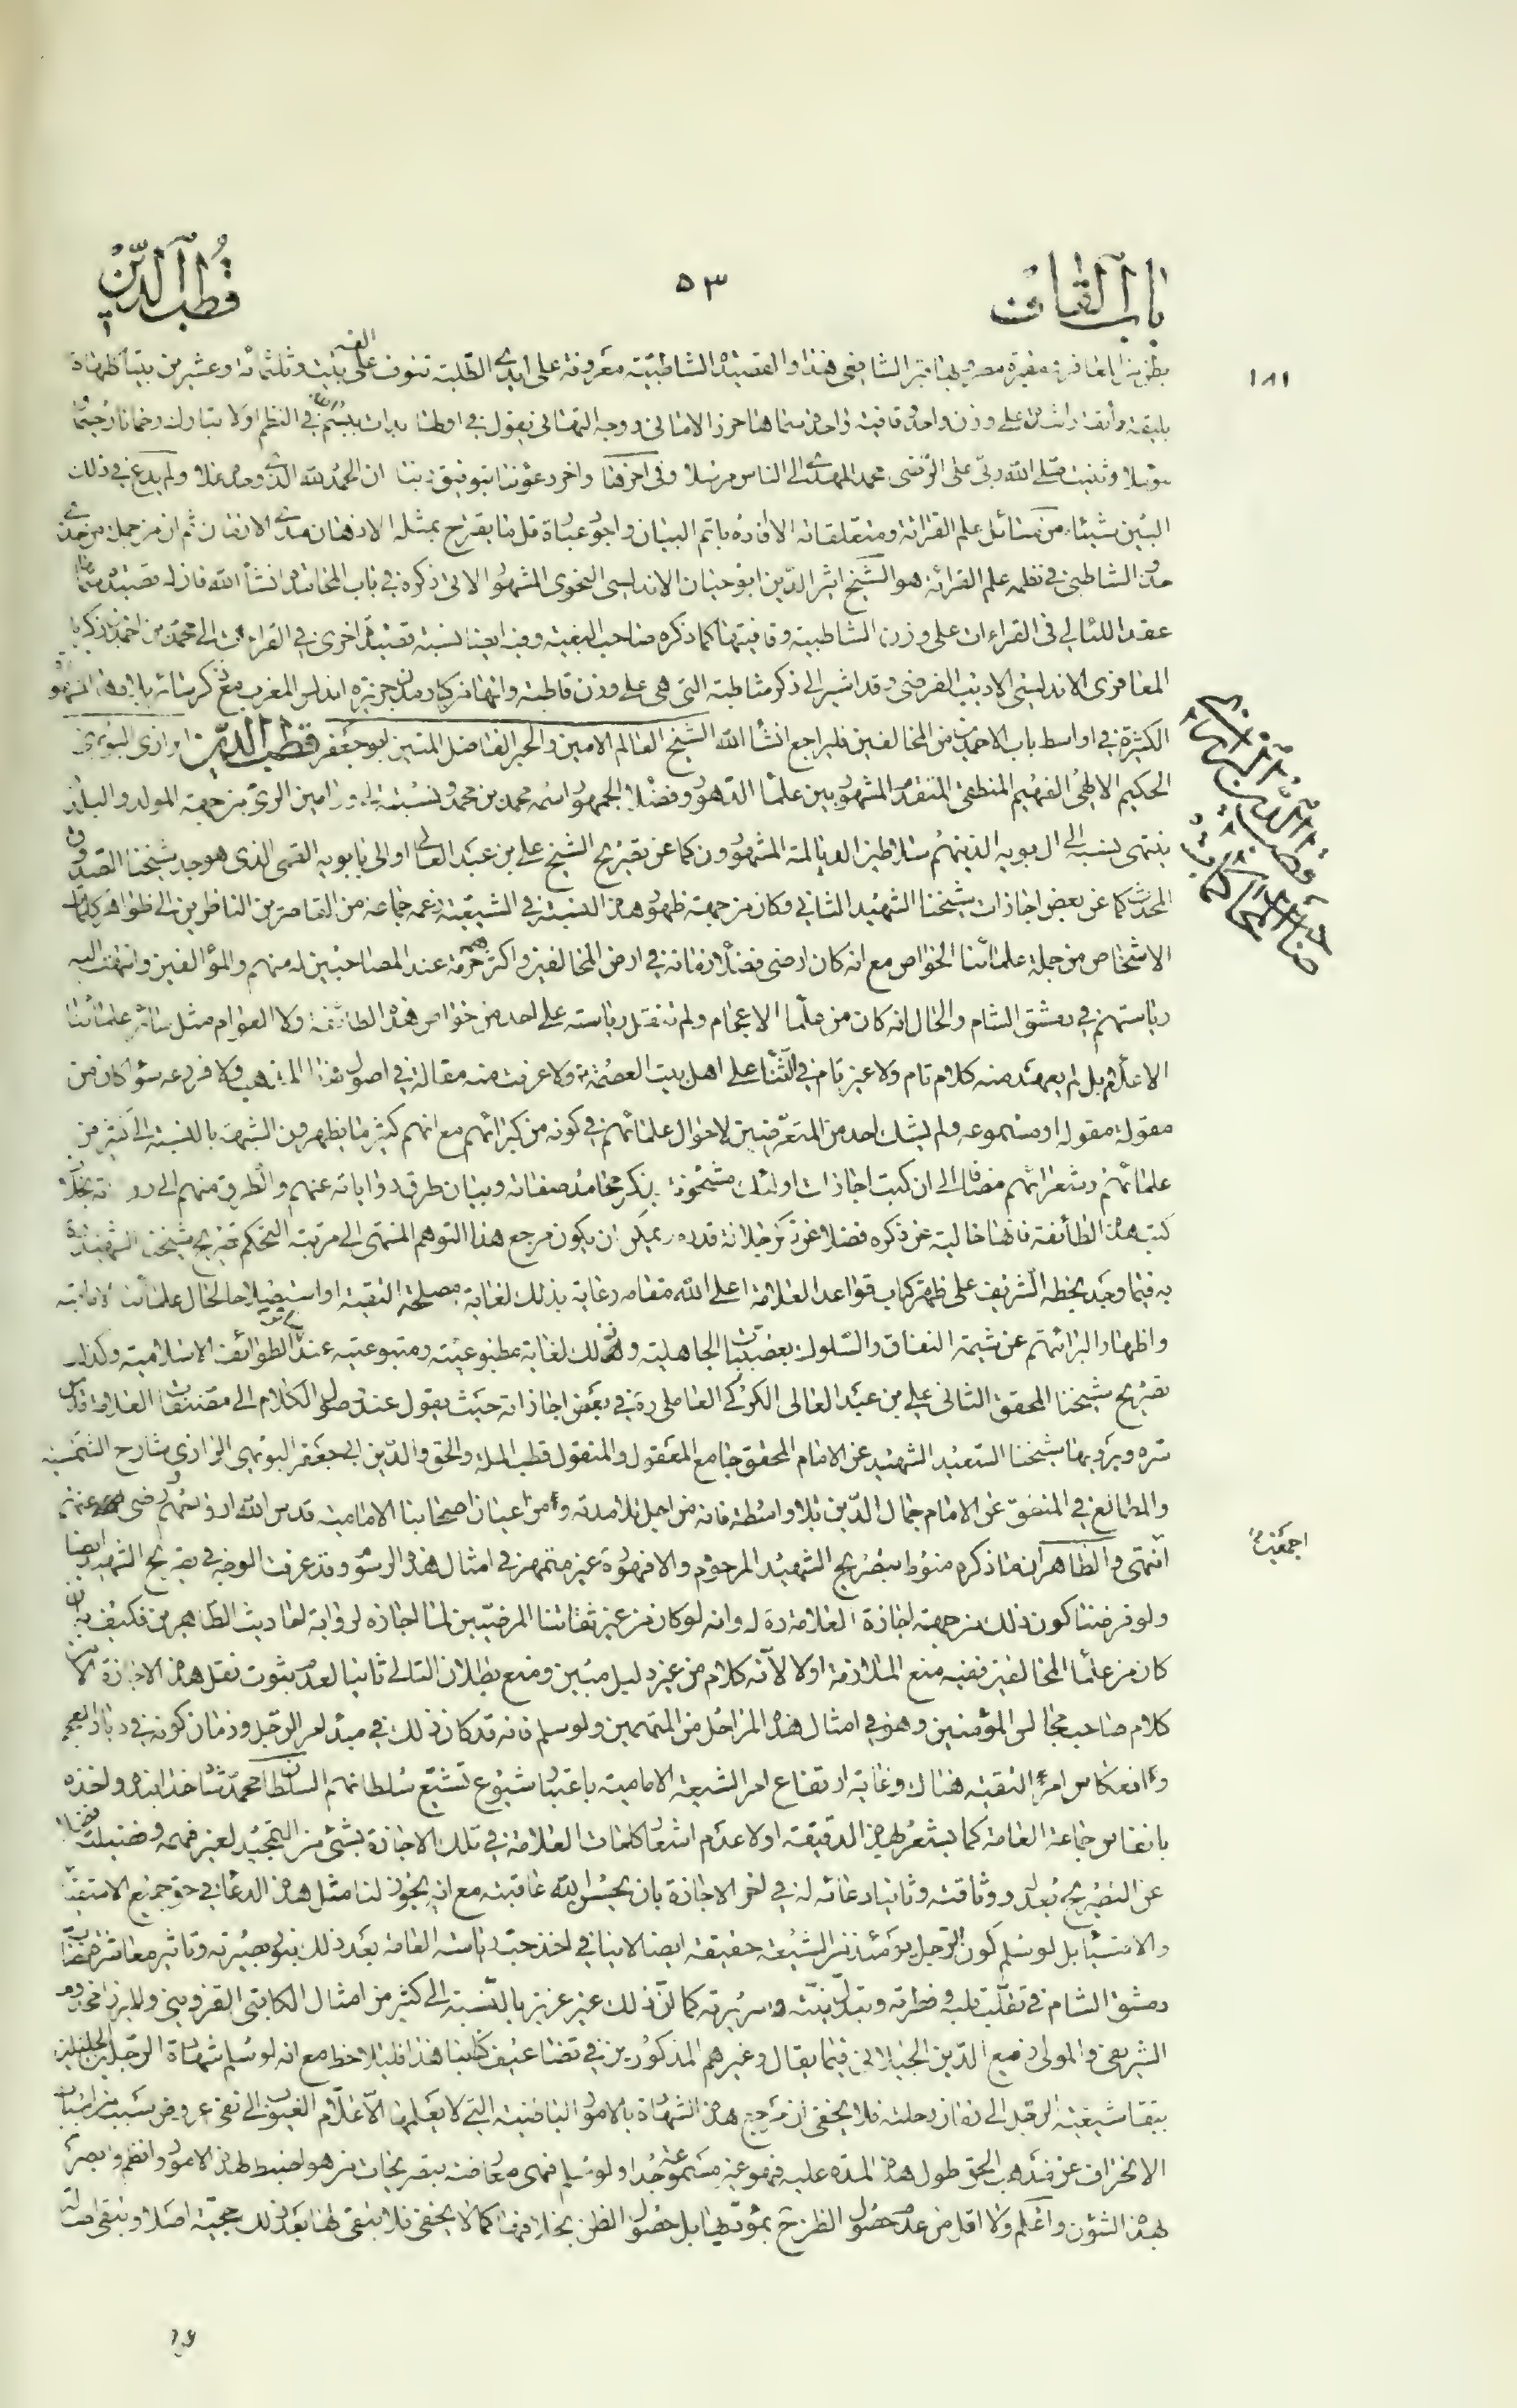 باب القاف
٥٣
قطب الدين
بطرف مقبرة مصر وبها قبر الشافعي هذا والقصيدة الشاطبية معروفة على ايدي الطلبة تنوف على الف بيت وثلثمائة وعشرين بيتا
على وزن واحد وقافية واحدة سماها حرز الاماني ووجه التهاني يقول في اولها بدات ببسم الله في النظم اولا تبارك رحمانا رحيما و
موئلا وثنيت صلى الله ربي على الرضى محمد المهدى الى الناس مرسلا وفي اخرها واخر دعونا بتوفيق ربنا ان الحمد لله الذي وحده علا ولم يدع في ذلك
البين شيئا من مسائل علم القرائة ومتعلقاته الا افاده باتم البيان واجود عبارة قل ما يقترح بمثله الاذهان مدى الازمان ثم ان من جملة من حذى
حذو الشاطبى في نظمه علم القرائة هو الشيخ اثير الدين ابو حيان الاندلسى النحوى المشهور الاتى ذكره في باب المحامدة انشا الله فان له قصيدة سماها
عقد اللئالي فى القراءات على وزن الشاطبية وقافيتها كما ذكره صاحب البغية وفيه ايضا نسبة قصيدة اخرى في القراءات الى محمد بن احمد بن زكريا
المعافرى الاندلسى الاديب الفرضى وقد اشير الى ذكر شاطبة التى هى على وزن فاطمة وانها من كبار مدن جزيرة اندلس المغرب مع ذكر سائر بلادها المشهورة
الكثيرة في اواسط باب الاحمدين من المخالفين فليراجع انشا الله الشيخ العالم الامين والحبر الفاضل المتين ابو جعفر قطب الدين الرازى البويهى
الحكيم الالهى الفهيم المنطقى المتقدم المشهور بين علماء الدهور وفضلاء الجمهور اسمه محمد بن محمد ونسبته الى ورامين الرى من جهة المولد والبلد
ينتهى نسبه الى ال بويه الذين هم سلاطين الديالمة المشهورون كما عن تصريح الشيخ على بن عبد العالى او الى بابويه القمى الذى هو جد شيخنا الصدوق
المحدث كما عن بعض اجازات شيخنا الشهيد الثانى وكان من جهة ظهور هذه النسبة في الشيعية زعمه جماعة من القاصرين الناظرين الى ظواهر كلمات
الاشخاص من جملة علمائنا الخواص مع انه كان ارضى فضلاء زمانه في ارض المخالفين واكثرهم حرمة عند المصاحبين له منهم والمؤالفين وانتهت اليه
رياستهم في دمشق الشام والحال انه كان من علماء الاعجام ولم تنقل رياسته على احد من خواص هذه الطائفة ولا العوام مثل سائر علمائنا
الاعلام بل لم يعهد منه كلام تام ولا غير تام في الثناء على اهل بيت العصمة ولا عرفت منه مقالة في اصول هذا المذهب ولا فروعه سواء كان من
مقولة مقوله او مسموعه ولم يشك احد من المتعرضين لاحوال علمائهم في كونه من كبرائهم مع انهم كثير ما يظهرون الشبهة بالنسبة الى كثير من
علمائهم وشعرائهم مضافا الى ان كتب اجازات اولئك مشحونة بذكر محامد صفاته وبيان طرق رواياته عنهم والطريق منهم الى رواياته بخلاف
كتب هذه الطائفة فانها خالية عن ذكره فضلا عن ذكر جلالة قدره ويمكن ان يكون مرجع هذا التوهم المنتهى الى مرتبة التحكم تصريح شيخنا الشهيد ره
به فيما وجد بخطه الشريف على ظهر كتاب قواعد العلامة اعلى الله مقامه رعاية بذلك لغاية مصلحة التقية او استصلاحا لحال علمائنا الامامية
واظهارا لبرائتهم عن شيمة النفاق والسلوك بعصبيات الجاهلية وذلك لغاية مطبوعيته ومتبوعيته عند الطوائف الاسلامية وكذلك
تصريح شيخنا المحقق الثانى على بن عبد العالى الكركى العاملى ره في بعض اجازاته حيث يقول عند وصول الكلام الى مصنفات العلامة قدس
سره ويرويها شيخنا السعيد الشهيد عن الامام المحقق جامع المعقول والمنقول قطب الملة والحق والدين ابى جعفر البويهى الرازى شارح الشمسية
والمطالع في المنطق عن الامام جمال الدين بلا واسطة فانه من اجل تلامذته ومن اعيان اصحابنا الامامية قدس الله ارواحهم ورضى عنهم
انتهى والظاهر ان ما ذكره منوط بتصريح الشهيد المرحوم والا فهو ره غير متمهر في امثال هذه الرسوم وقد عرفت الوجه في تصريح الشهيد ايضا
ولو فرضنا كون ذلك من جهة اجازة العلامة ره له وانه لو كان من غير ثقاتنا المرضيين لما اجازه لرواية احاديث الطاهرين فكيف به ان
كان من علماء المخالفين ففيه منع الملازمة اولا لانه كلام من غير دليل مبين ومنع بطلان التالى ثانيا لعدم ثبوت نقل هذه الاجازة الا من
كلام صاحب مجالس المؤمنين وهو في امثال هذه المراحل من المتهمين ولو سلم فانه قد كان ذلك في مبدء امر الرجل وزمان كونه في ديار العجم
وانعكاس امر التقية هناك وغاية ارتفاع امر الشيعة الامامية باعتبار شيوع تشيع سلطانهم السلطان محمد شاه خدابنده واخذه
بانفاس جماعة العامة كما يشعر بهذه الدقيقة اولا عدم اشعار كلمات العلامة في تلك الاجازة بشئ من التمجيد لغير فهمه وفضيلته فضلا
عن التصريح بعدله ووثاقته وثانيا دعائه له في اخر الاجازة بان يحسن الله عاقبته مع انه يجوز لنا مثل هذه الدعاء في حق جميع الاشقياء
والاشياء بل لو سلم كون الرجل يومئذ من الشيعة حقيقة ايضا لا ينافي اخذ حب رياسة العامة بعد ذلك بنور بصيرته وتاثير معاشرة نصاب
دمشق الشام في تقلب قلبه وفطرته وتبدل نيته وسريرته كما ان ذلك غير عزيز بالنسبة الى كثير من امثال الكاتبى القزوينى والميرزا مخدوم
الشريفى والمولى رفيع الدين الجيلانى فيما يقال وغيرهم المذكورين في تضاعيف كتابنا هذا فليلاحظ مع انه لو سلم شهادة الرجلين الجليلين
ببقاء شيعية الرجل الى زمان رحلته فلا يخفى ان مرجع هذه الشهادة بالامور الباطنية التى لا يعلمها الا علام الغيوب الى نفى عروض سبب من اسباب
الانحراف عن مذهب الحق طول هذه المدة عليه فهو غير مسموعة جدا ولو سلم فهى معارضة بتصريحات من هو اضبط لهذه الامور وانظم وابصر
لهذه الشؤن واعلم ولا اقل من عدم حصول الظن ح بمؤداها بل حصول الظن بخلافها كما لا يخفى فلا تبقى لها بعد ذلك حجية اصلا وتبقى اصالة
١٨١
قطب الدين الرازى
صاحب المحاكمات
اجمعين